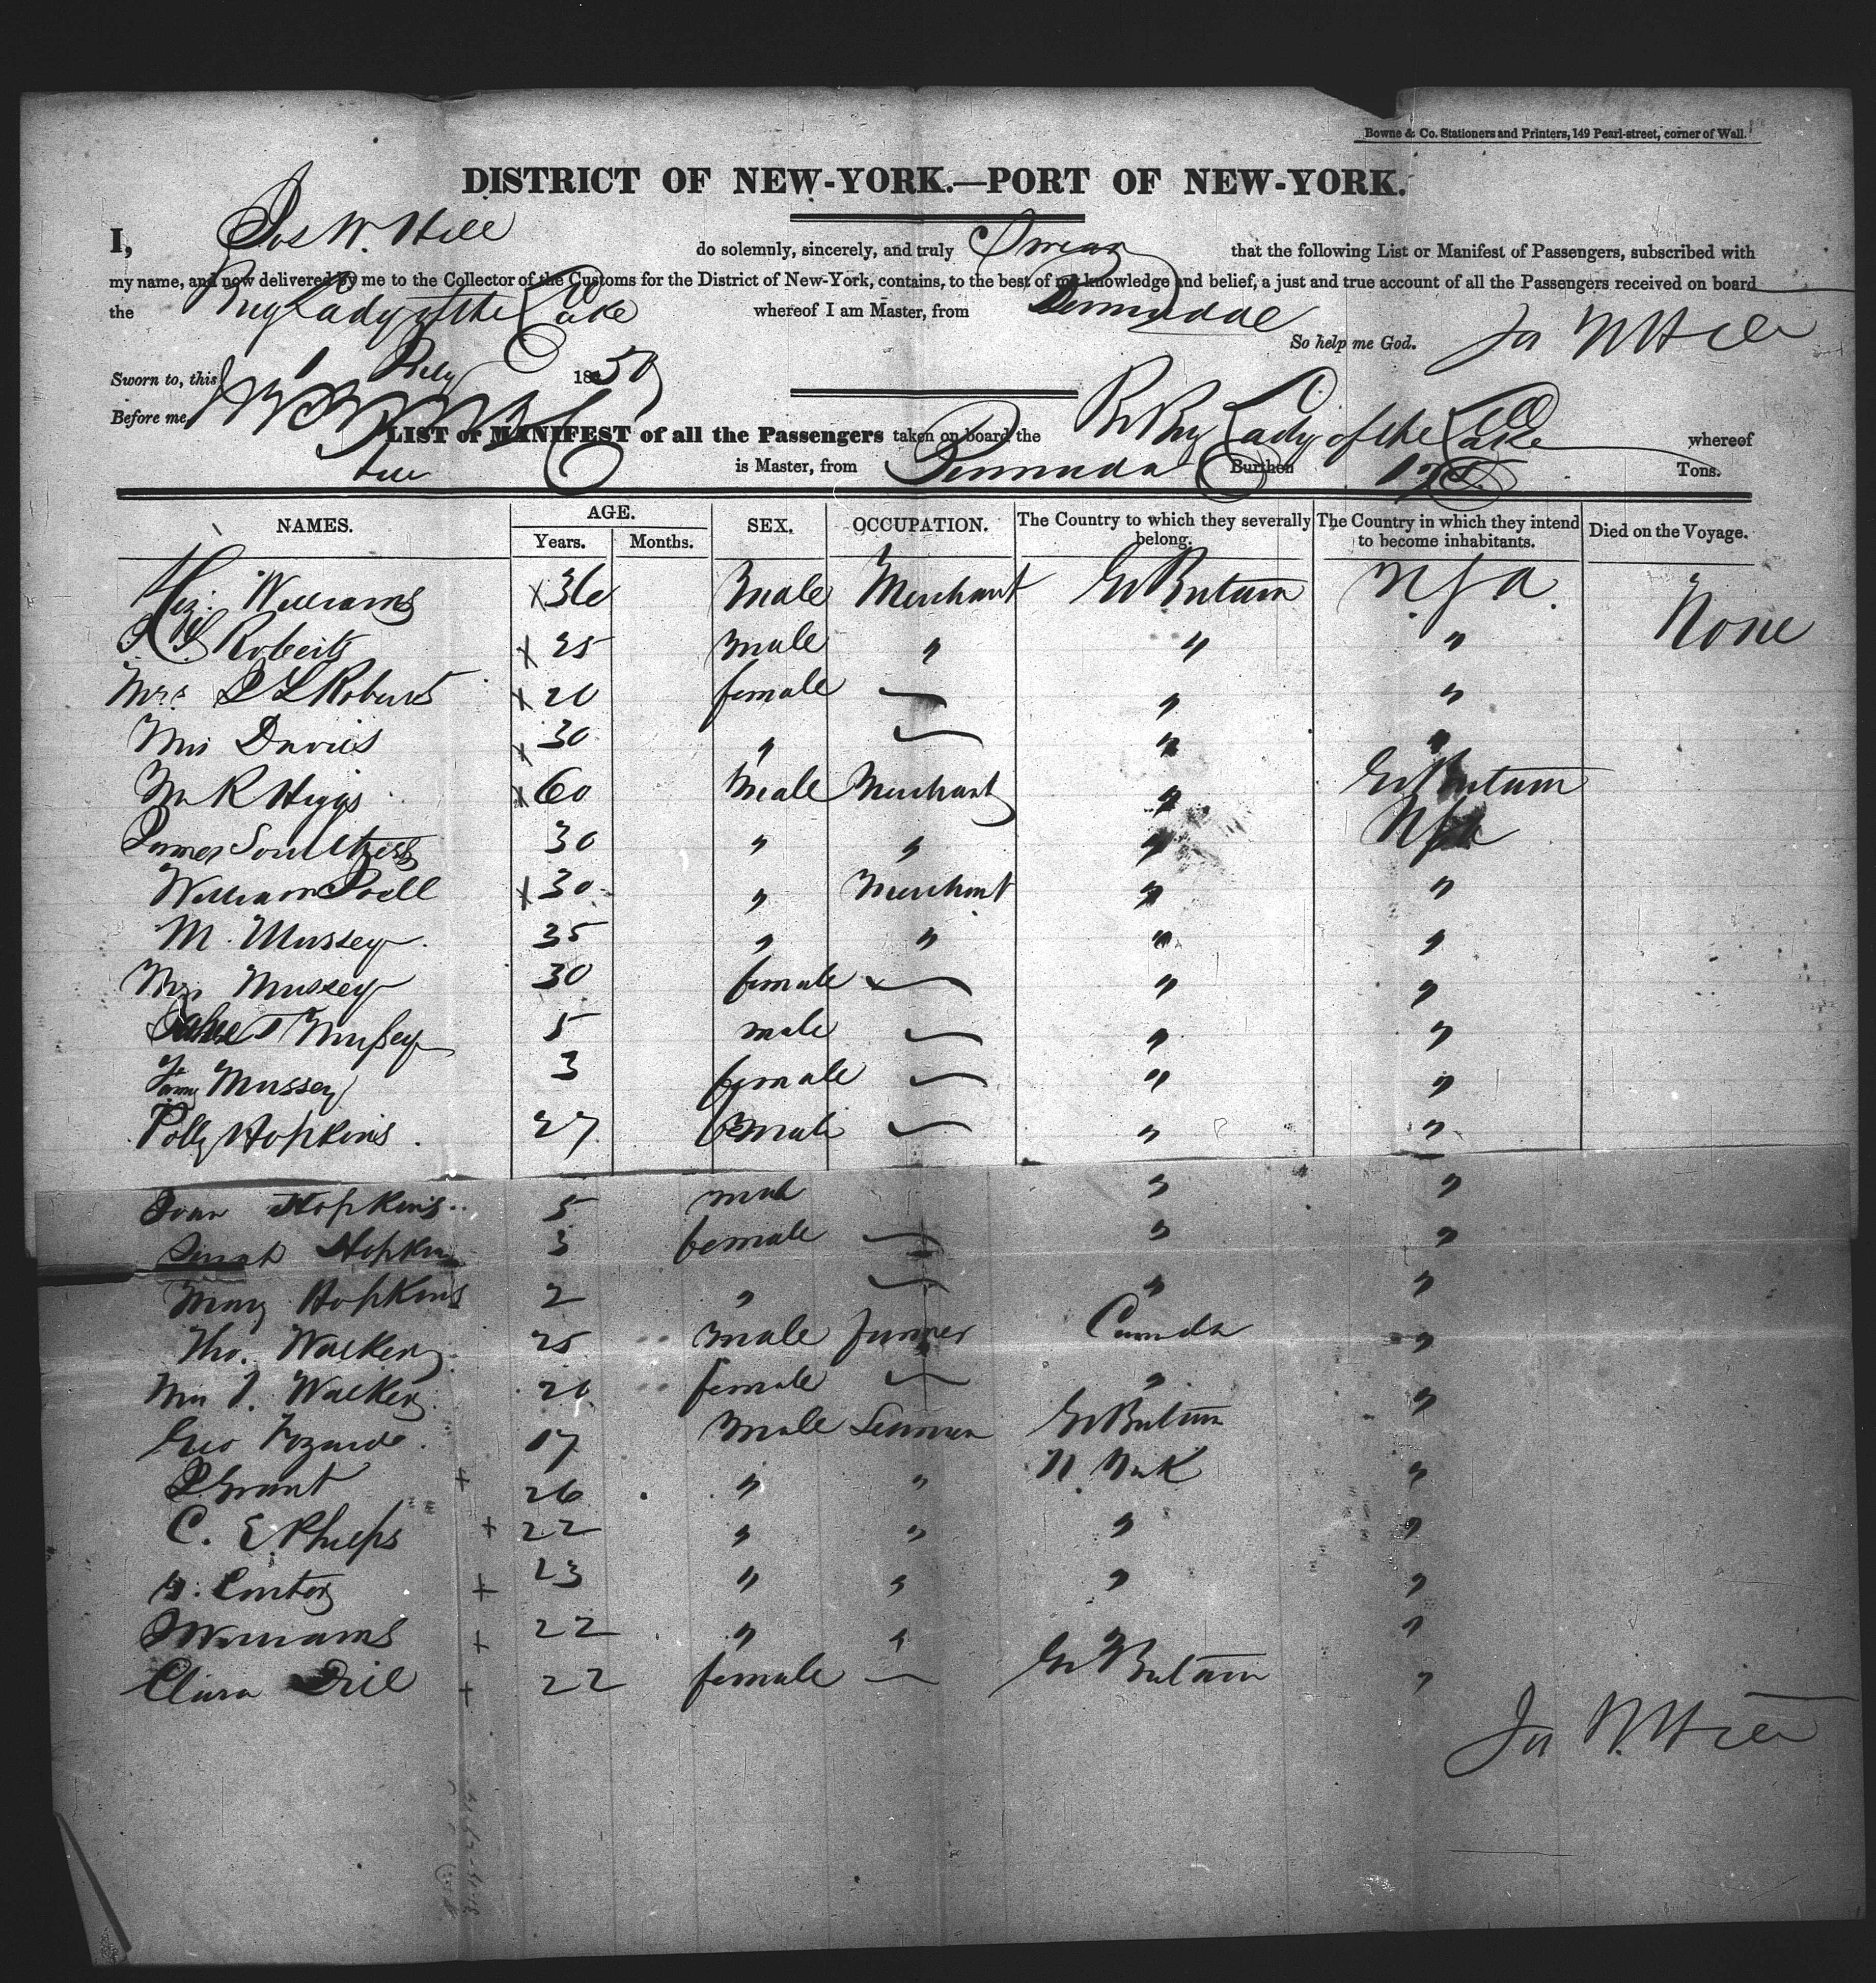 Bowne & Co. Stationers and Printers, 149 Pearl-street, corner of Wall.
DISTRICT OF NEW-YORK.—PORT OF NEW-YORK.
I, Jos W. Hill do solemnly, sincerely, and truly Swear that the following List or Manifest of Passengers, subscribed with
my name, and now delivered by me to the Collector of the Customs for the District of New-York, contains, to the best of my knowledge and belief, a just and true account of all the Passengers received on board
the Brig Lady of the Lake whereof I am Master, from Bermudae
So help me God. Jos W Hill
Sworn to, this 1 July 1850
Before me,
LIST or MANIFEST of all the Passengers taken on board the Br Brig Lady of the Lake whereof
is Master, from Bermuda Burthen Tons.
NAMES. AGE. Years. Months. SEX. OCCUPATION. The Country to which they severally belong. The Country in which they intend to become inhabitants. Died on the Voyage.
Hez: Williams x 36 Male Merchant Gt Britain None
Roberts x 25 male " " "
Mrs S L Roberts x 20 female " "
Davies x 30 " " "
Mr R Higgs x 60 Male Merchant " Gt Britain
James 30 " " "
William x 30 " Merchant " "
M. Mussey 35 " " " "
Mrs Mussey 30 female " "
T Mussey 5 male " "
Fanny Mussey 3 female " "
Polly Hopkins 27 female " "
Hopkins 5 male " "
Sarah Hopkins 3 female " "
Mary Hopkins 2 " " "
Tho. Walker 25 male farmer Canada "
T. Walker 20 female " "
Geo 17 Male Seaman Gt Britain "
Grant + 26 " " N York "
C. E. Phelps + 22 " " " "
+ 23 " " " "
Williams + 22 " " " "
Clara + 22 female Gt Britain "
Jos W. Hill